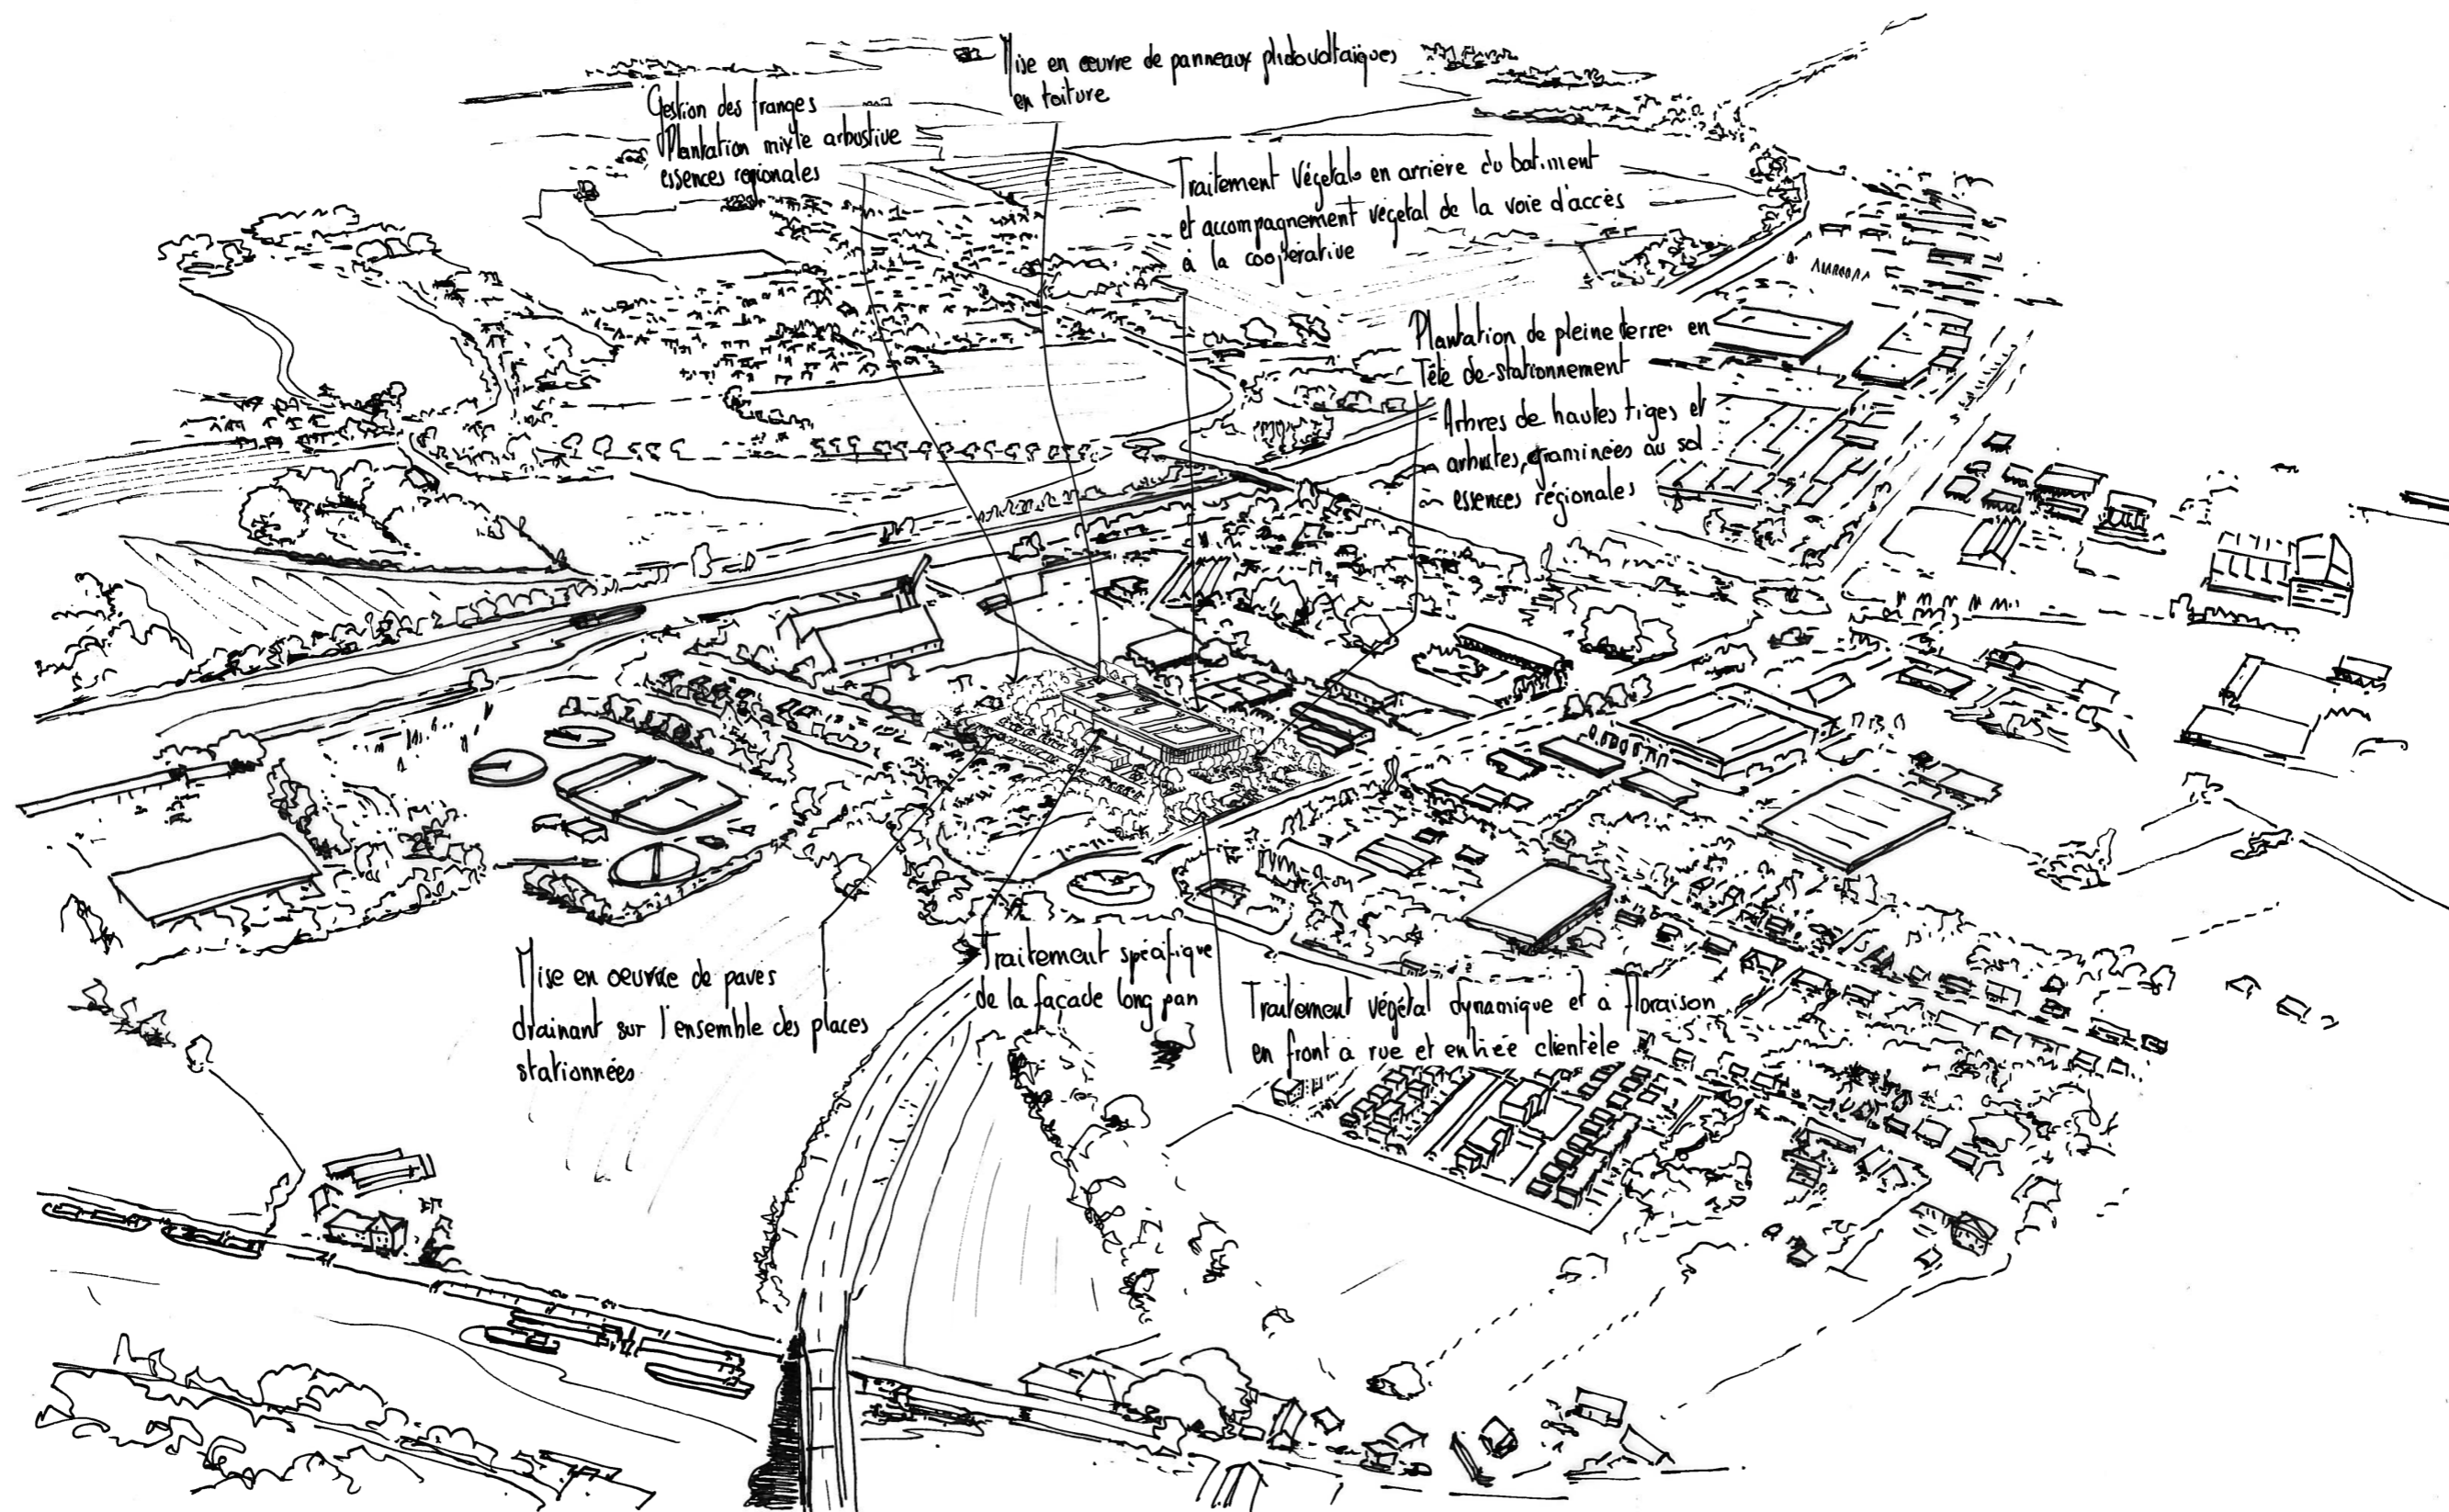 Mise en œuvre de panneaux photovoltaïques
en toiture
Gestion des franges
Plantation mixte arbustive
essences régionales
Traitement Végétal en arrière du batiment
et accompagnement végétal de la voie d'accès
à la coopérative
Plantation de pleine terre en
Tête de stationnement
Arbres de hautes tiges et
arbustes, graminées au sol
essences régionales
Mise en oeuvre de paves
drainant sur l'ensemble des places
stationnées
Traitement spécifique
de la façade long pan
Traitement végétal dynamique et à floraison
en front à rue et entrée clientèle